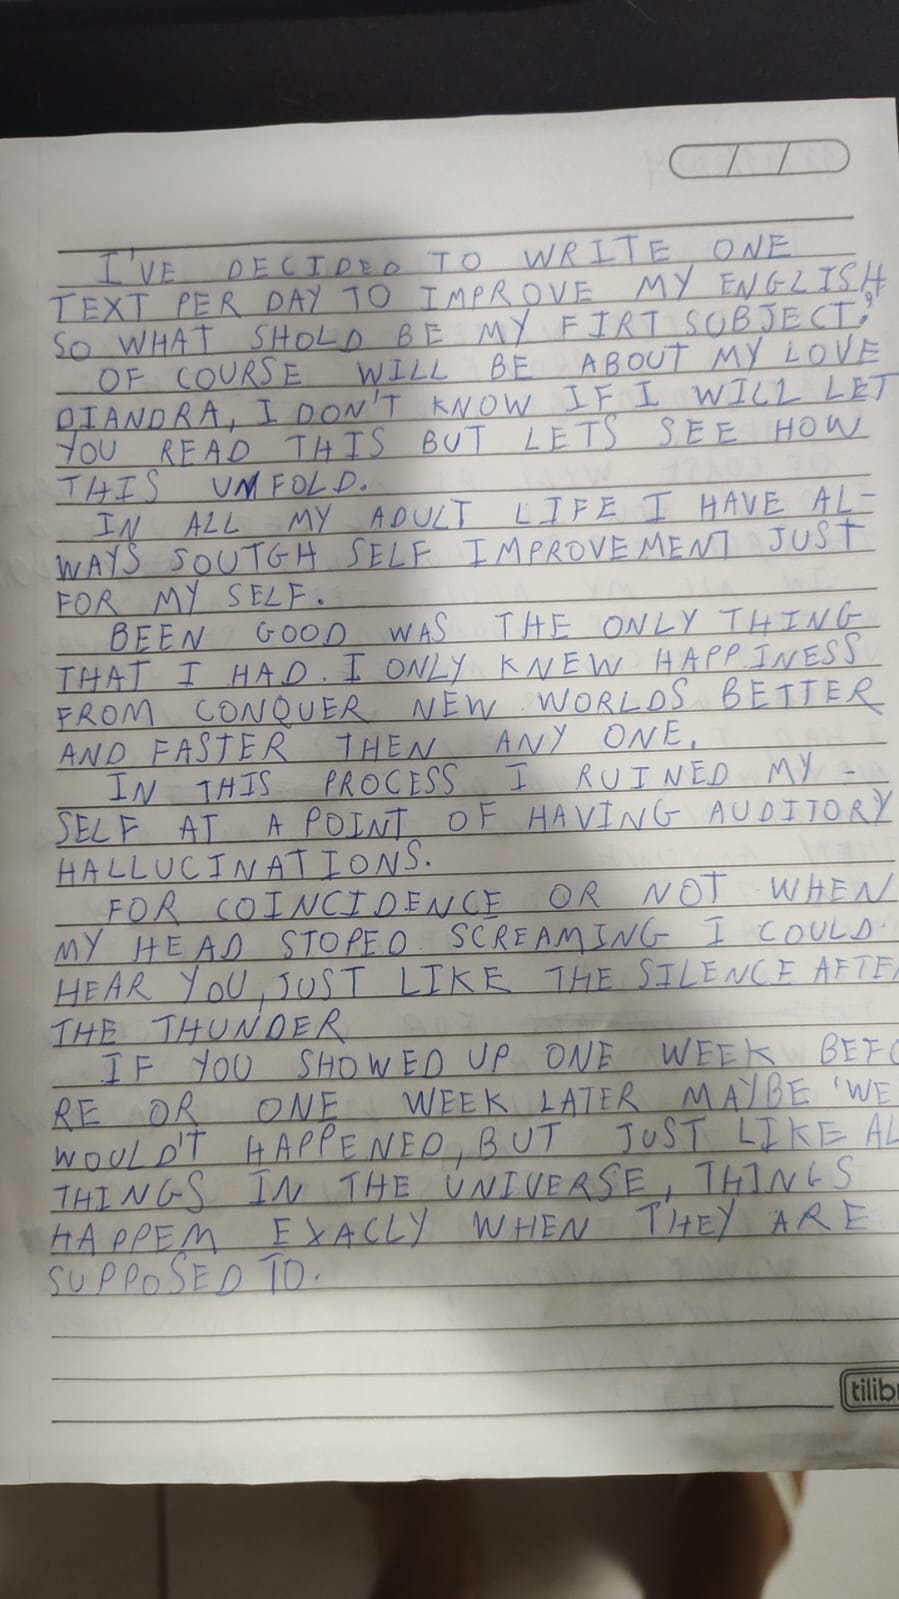 I'VE DECIDED TO WRITE ONE
TEXT PER DAY TO IMPROVE MY ENGLISH
SO WHAT SHOLD BE MY FIRT SUBJECT?
OF COURSE WILL BE ABOUT MY LOVE
DIANDRA, I DON'T KNOW IF I WILL LET
YOU READ THIS BUT LETS SEE HOW
THIS UNFOLD.
IN ALL MY ADULT LIFE I HAVE AL-
WAYS SOUTGH SELF IMPROVEMENT JUST
FOR MY SELF.
BEEN GOOD WAS THE ONLY THING
THAT I HAD. I ONLY KNEW HAPPINESS
FROM CONQUER NEW WORLDS BETTER
AND FASTER THEN ANY ONE.
IN THIS PROCESS I RUINED MY -
SELF AT A POINT OF HAVING AUDITORY
HALLUCINATIONS.
FOR COINCIDENCE OR NOT WHEN
MY HEAD STOPED SCREAMING I COULD
HEAR YOU, JUST LIKE THE SILENCE AFTE
THE THUNDER
IF YOU SHOWED UP ONE WEEK BEFO
RE OR ONE WEEK LATER MAYBE 'WE
WOULD'T HAPPENED, BUT JUST LIKE AL
THINGS IN THE UNIVERSE, THINGS
HAPPEM EXACLY WHEN THEY ARE
SUPPOSED TO.
tilib